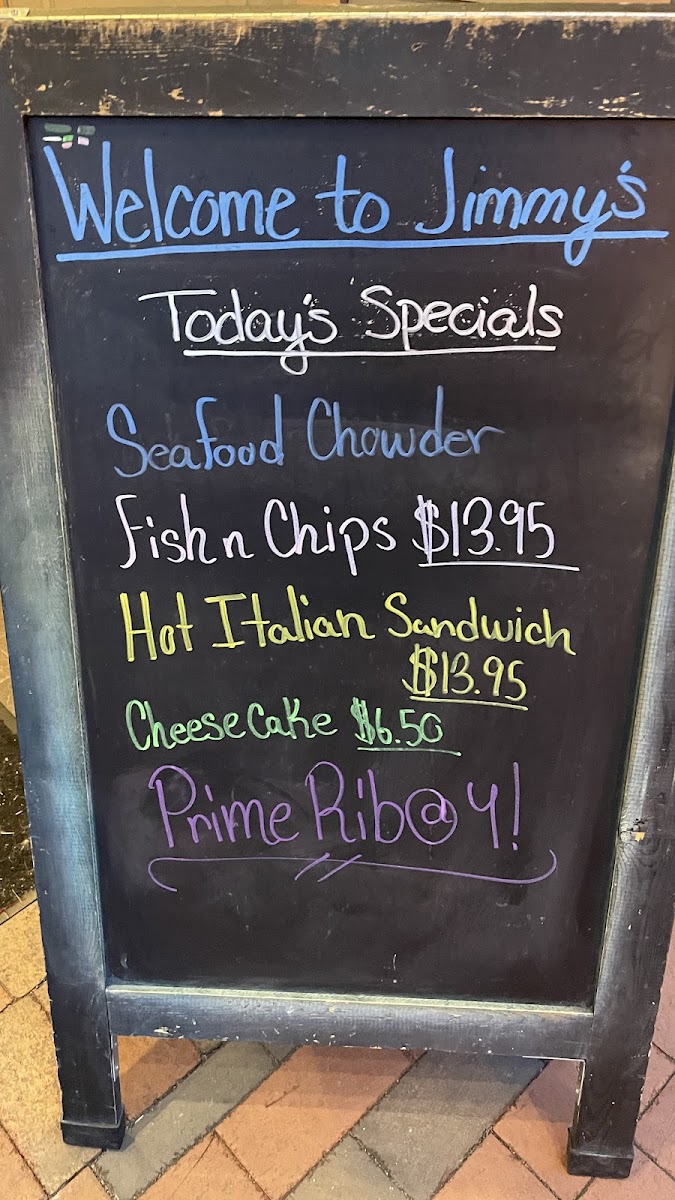 Welcome to Jimmy's
Today's Specials
Seafood Chowder
Fish n Chips $13.95
Hot Italian Sandwich
$13.95
Cheese Cake $6.50
Prime Rib @ 4!